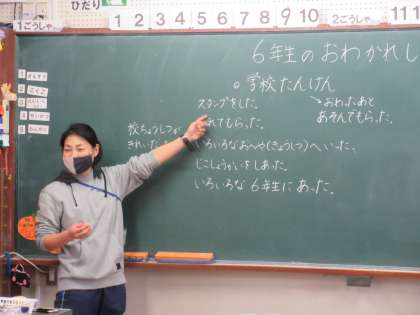 1ごうしゃ
ひだり
1 2 3 4 5 6 7 8 9 10
2ごうしゃ
111
6年生のおわかれし
○学校たんけん
スタンプをした。
↘おわったあと
あそんでもらった。
れてもらった。
校ちょうしつが
きれいだ
いろいろなおへや(きょうしつ)へいった。
じこしょうかいをしあった。
いろいろな6年生にあった。
1
2 こくご
3
4
5